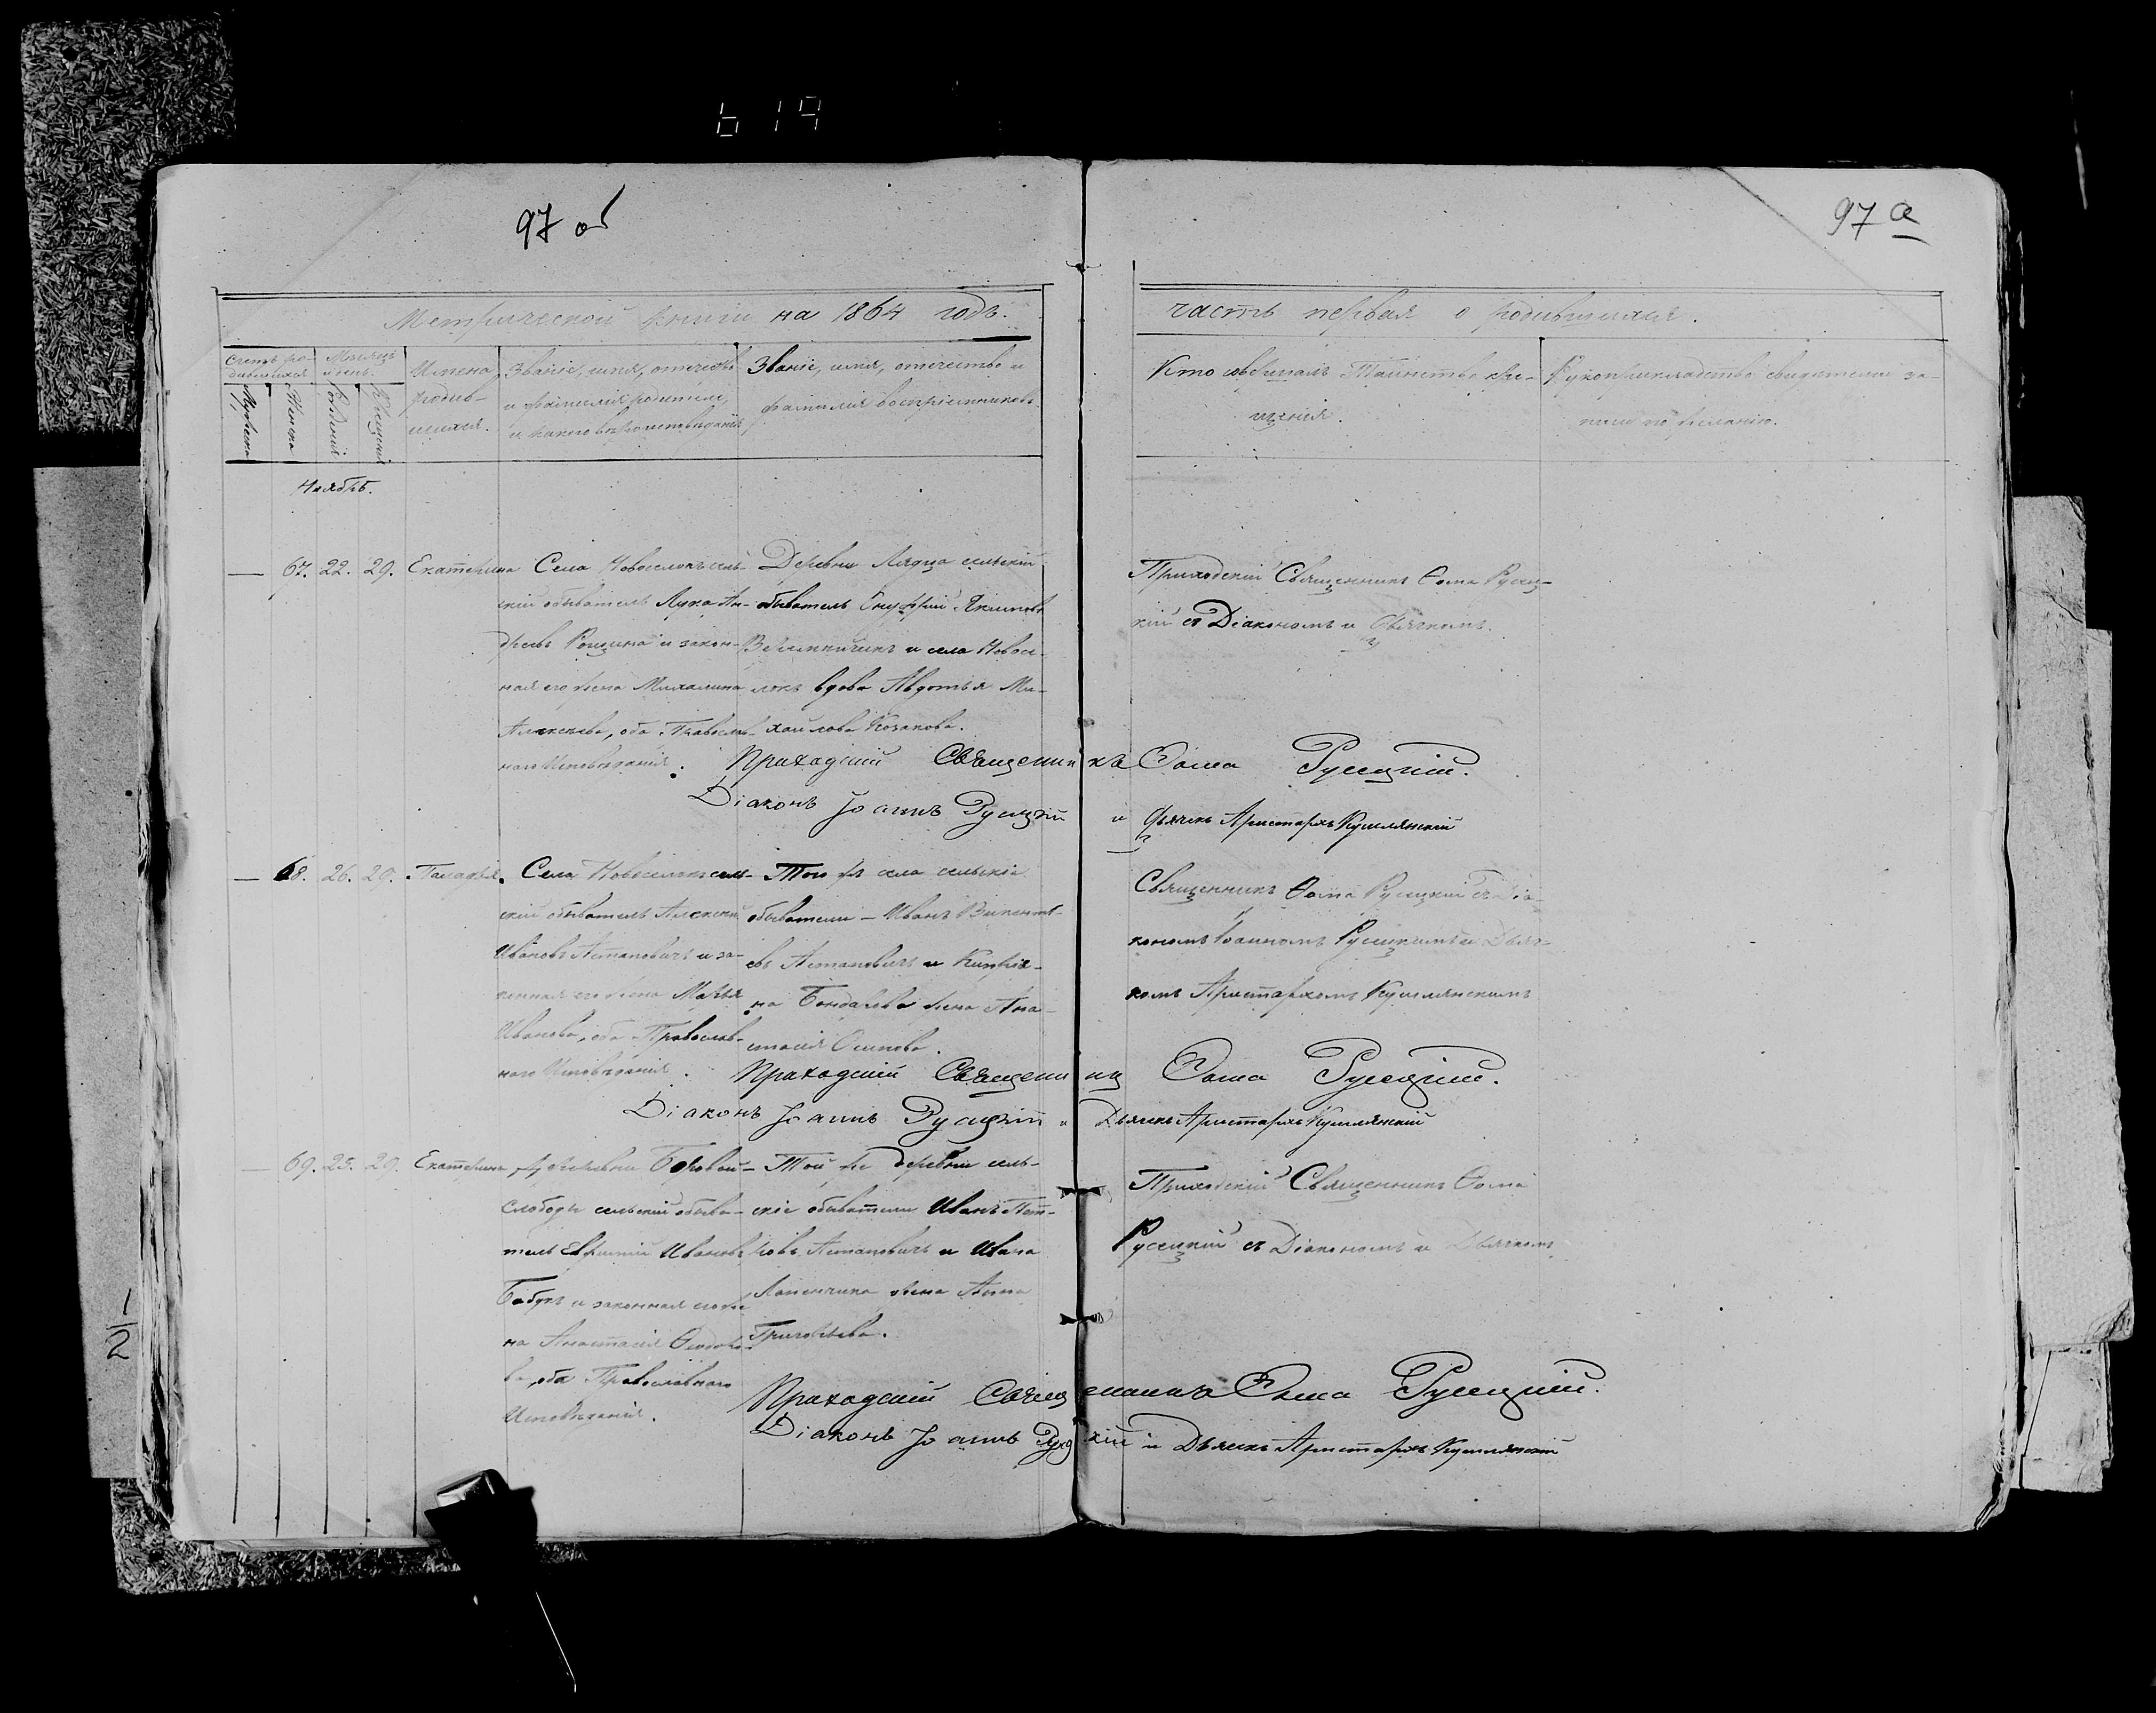 619
97 об
97 а
Метрической книги на 1864 годъ.
часть первая о родившихся.
Счетъ ро-
дившихся
Мѣсяцъ
и день.
Мужеска
Женска
Рожденія
Крещенія
Имена
родив-
шихся.
Званіе, имя, отечество
и фамилія родителей,
и какого вѣроисповѣданія
Званіе, имя, отечество и
фамилія воспріемниковъ
Кто совершалъ Таинство кре-
щенія.
Рукоприкладство свидѣтелей за-
писи по желанію.
Ноябрь.
— 67. 22. 29. Екатерина
Села Новоселокъ сель-
скій обыватель Лука Ан-
дреевъ Рощина и закон-
ная его жена Михалина
Алексѣева, оба Православ-
наго Исповѣданія.
Деревни Лядца сельскій
обыватель Онуфрій Якимовъ
и села Новосе-
локъ вдова Авдотья Ми-
хайлова Козакова.
Приходскій Священникъ Ѳома Русец-
кій съ Діакономъ и Дьячкомъ.
Приходскій Священникъ Ѳома Русецкій.
Діаконъ Іоаннъ Русецкій и Дьячекъ Аристархъ Кушлянскій
— 68. 26. 29. Палагія.
Села Новоселокъ сель-
скій обыватель Алексѣй
Ивановъ Астаповичъ и за-
конная его жена Марья
Иванова, оба Православ-
наго Исповѣданія.
Того жъ села сельскіе
обыватели — Иванъ Викентъ-
евъ Астаповичъ и Кипріа-
на Бондарева жена Ана-
стасія Осипова.
Священникъ Ѳома Русецкій съ Діа-
кономъ Іоанномъ Русецкимъ и Дьяч-
комъ Аристархомъ Кушлянскимъ
Приходскій Священникъ Ѳома Русецкій.
Діаконъ Іоаннъ Русецкій и Дьячекъ Аристархъ Кушлянскій
— 69. 25. 29. Екатерина
Деревни Боровой
Слободы сельскій обыва-
тель Евфимій Ивановъ
Бабукъ и законная его же-
на Анастасія Ѳеодоро-
ва, оба Православнаго
Исповѣданія.
Той же деревни сель-
скіе обыватели Иванъ Пет-
ровъ Астаповичъ и Ивана
жена Анна
Григорьева.
Приходскій Священникъ Ѳома
Русецкій съ Діакономъ и Дьячкомъ
Приходскій Священникъ Ѳома Русецкій.
Діаконъ Іоаннъ Русецкій и Дьячекъ Аристархъ Кушлянскій
1
2